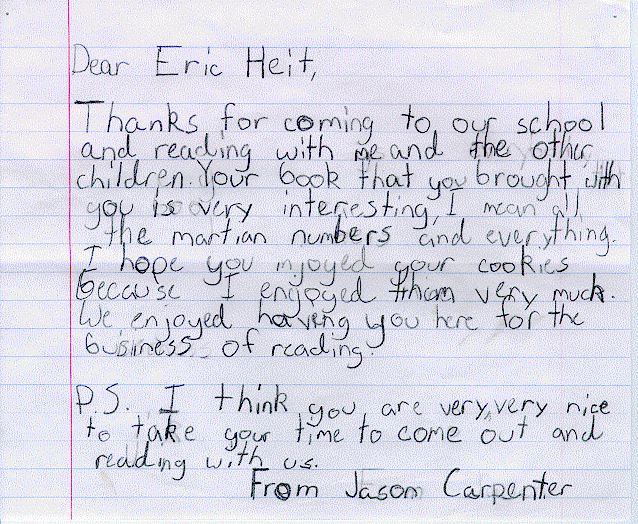 Dear Eric Heit,
Thanks for coming to our school
and reading with me and the other
children. Your book that you brought with
you is very interesting, I mean all
the martian numbers and everything.
I hope you injoyed your cookies
because I engoyed tham very much.
We enjoyed having you here for the
business of reading.
P.S. I think you are very, very nice
to take your time to come out and
reading with us.
From Jason Carpenter